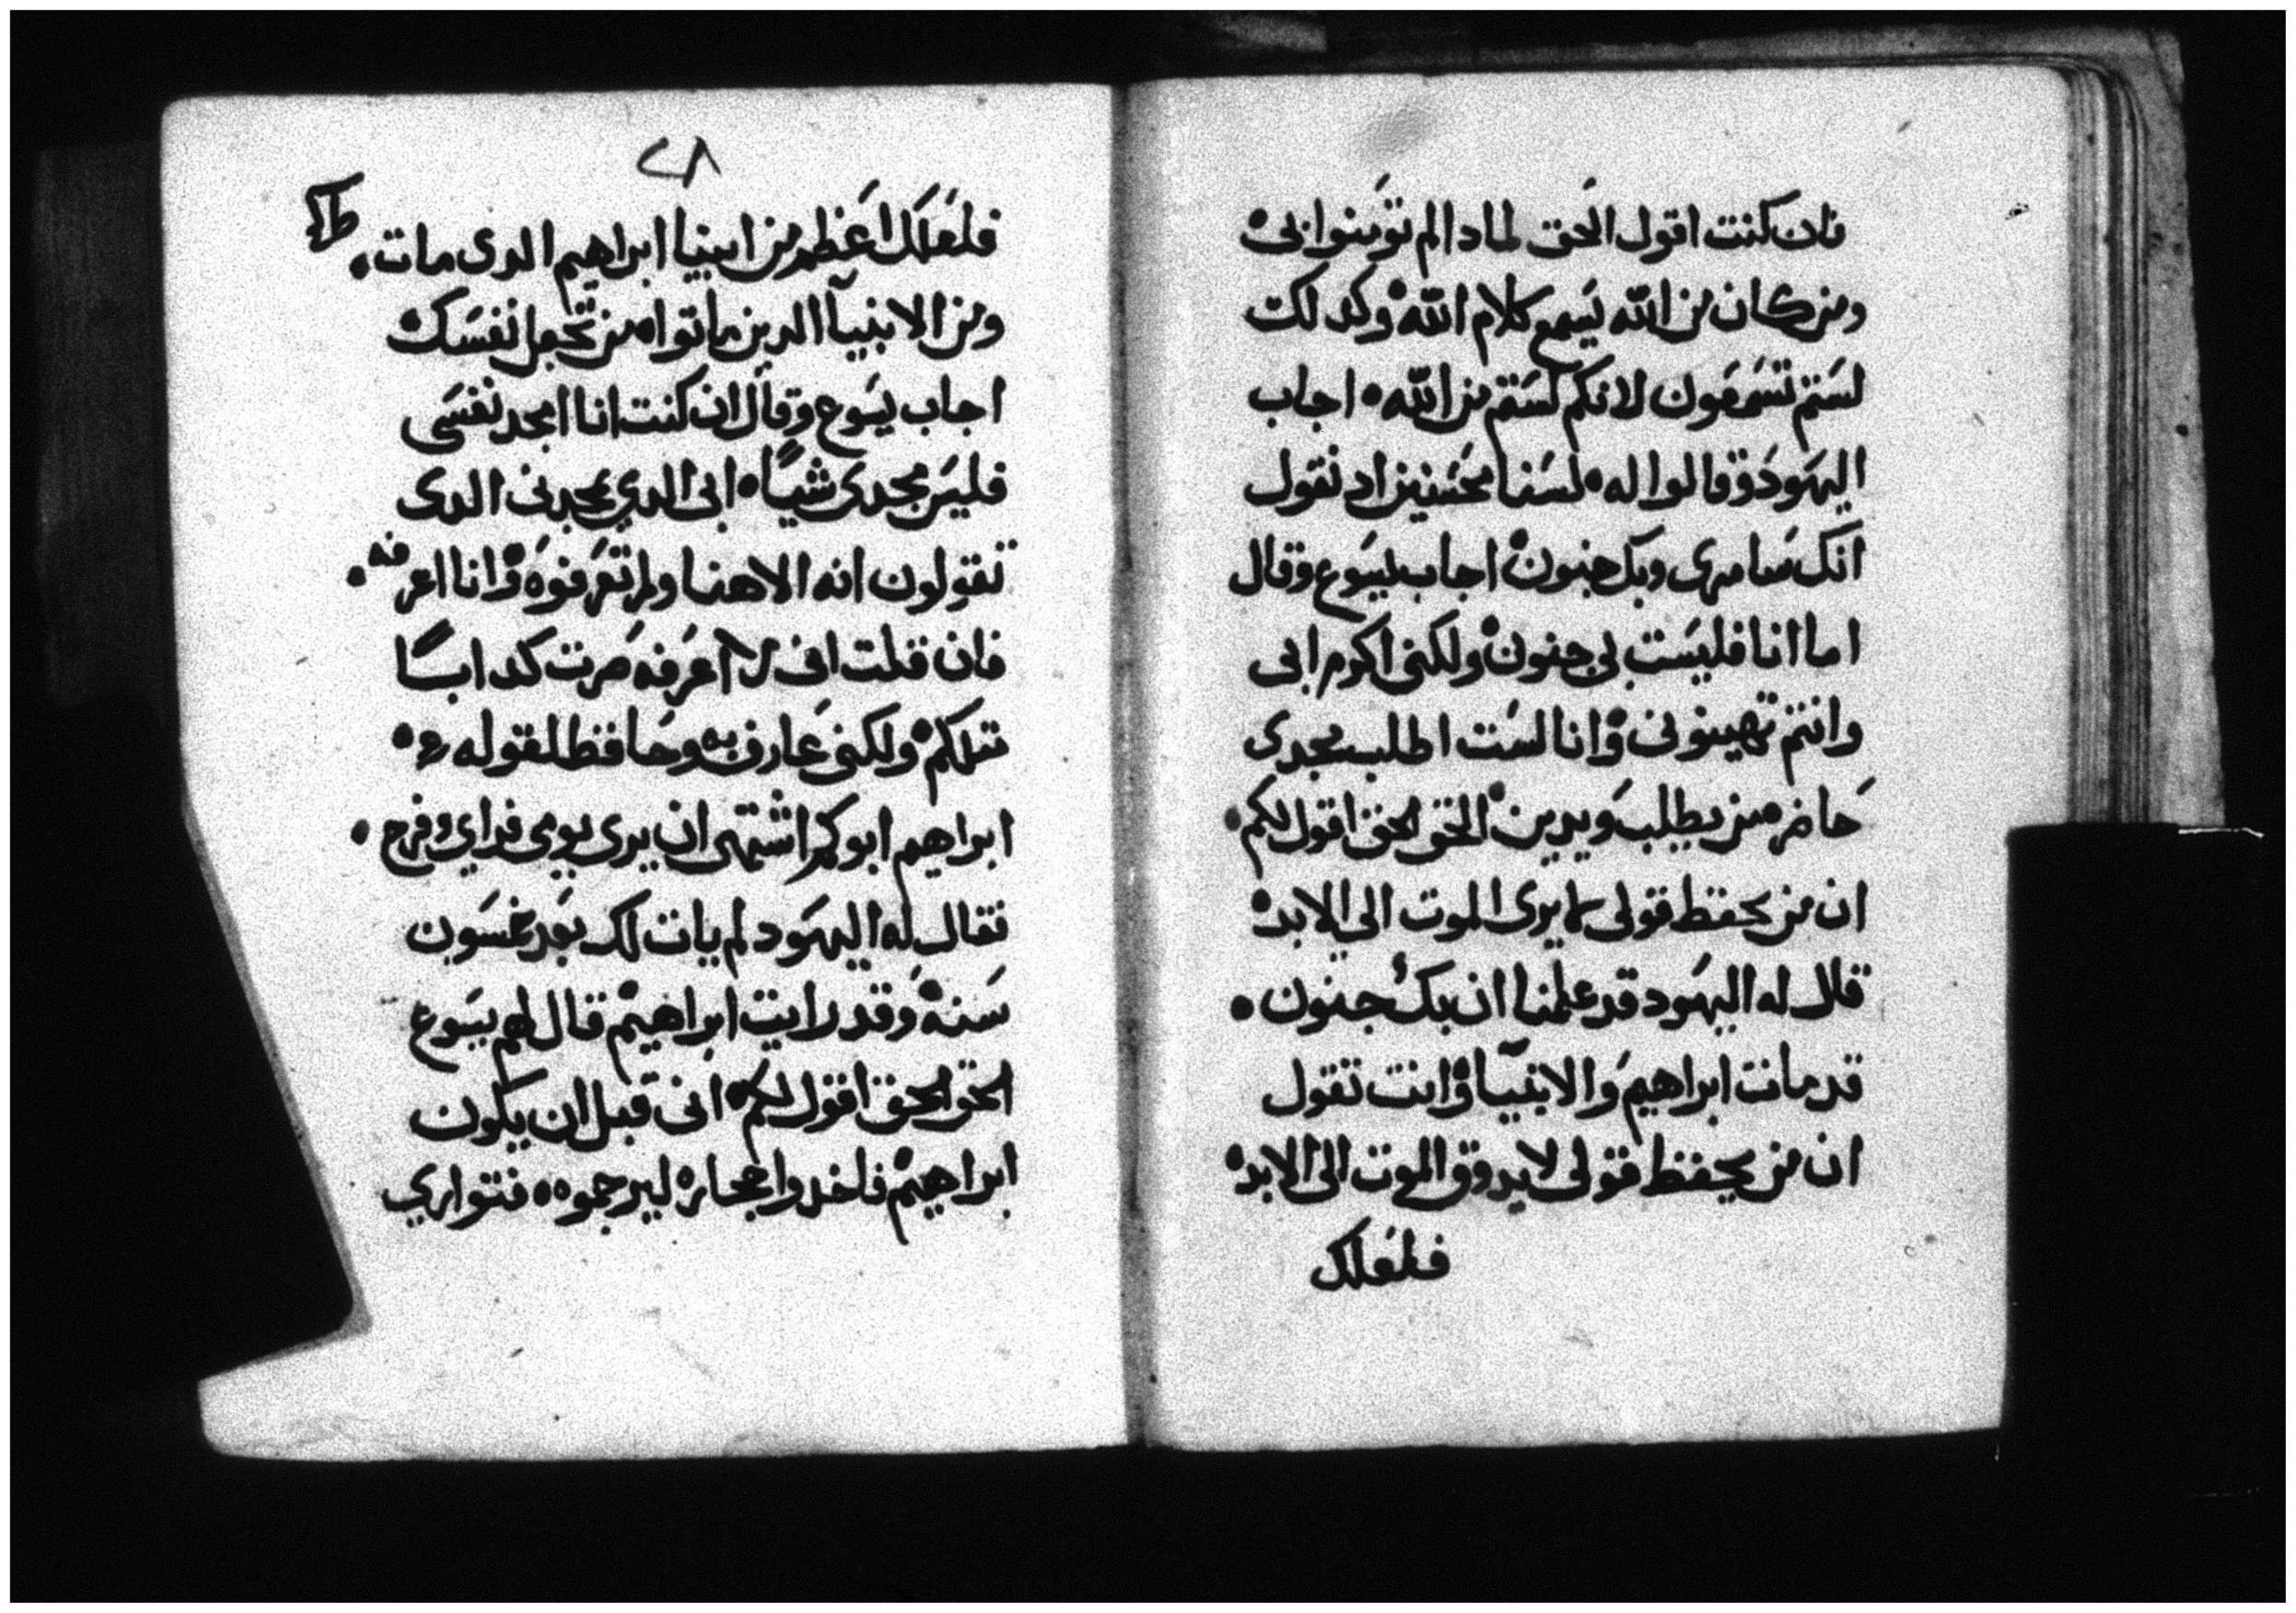 فان كنت اقول الحق لمادا لم تومنوا بي
ومن كان من الله يسمع كلام الله وكدلك
لستم تسمعون لانكم لستم من الله اجاب
اليهود وقالوا له لسنا محسنين اد نقول
انك سامرى وبك جنون اجاب يسوع وقال
اما انا فليست بي جنون ولكني اكرم ابي
وانتم تهينوني وانا لست اطلب مجدى
حاضر من يطلب ويدين الحق الحق اقول لكم
ان من يحفظ قولي لا يرى الموت الي الابد
قال له اليهود قد علمنا ان بك جنون
قد مات ابراهيم والانبيا وانت تقول
ان من يحفظ قولي لا يدوق الموت الى الابد
فلعلك
٢٨
فلعلك اعظم من ابينا ابراهيم الدى مات
ومن الانبيا الدين ماتوا من تجعل نفسك
اجاب يسوع وقال ان كنت انا امجد نفسي
فليس مجدى شيا ابي الدي يمجدني الدى
تقولون انه الاهنا ولم تعرفوه وانا اعرفه
فان قلت اني لا اعرفه صرت كدابا
متلكم ولكني عارف به وحافظ لقوله
ابراهيم ابوكم اشتهى ان يرى يومي فراي وفرح
فقال له اليهود لم يات لك بعد خمسون
سنه وقد رايت ابراهيم قال لهم يسوع
الحق الحق اقول لكم اني قبل ان يكون
ابراهيم فاخدوا حجاره ليرجموه فتواري